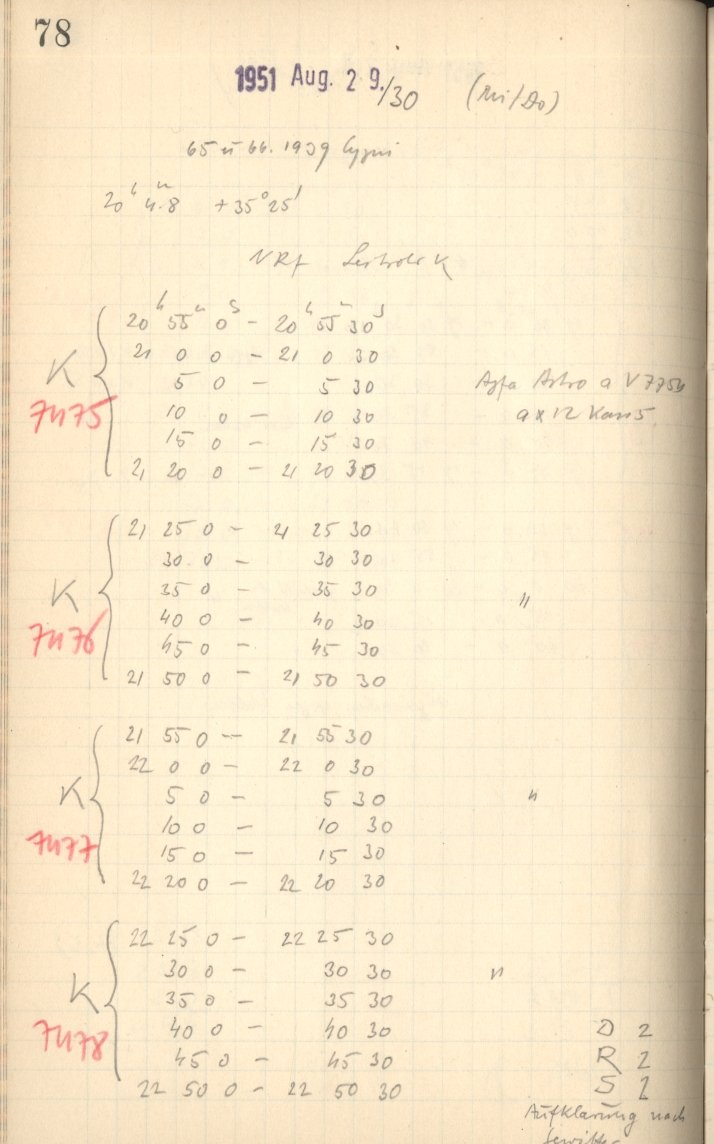 78
1951 Aug. 29./30 (Mi/Do)
65 u 66. 1939 Cygni
20ʰ 4ᵐ.8 +35°25'
20ʰ 55ᵐ 0ˢ – 20ʰ 55ᵐ 30ˢ
21 0 0 – 21 0 30
K 5 0 – 5 30 Agfa Astro a V 7756
7475 10 0 – 10 30 9x12 Kass 5.
15 0 – 15 30
21 20 0 – 21 20 30
21 25 0 – 21 25 30
30 0 – 30 30
K 35 0 – 35 30 "
7476 40 0 – 40 30
45 0 – 45 30
21 50 0 – 21 50 30
21 55 0 – 21 55 30
22 0 0 – 22 0 30
K 5 0 – 5 30 "
7477 10 0 – 10 30
15 0 – 15 30
22 20 0 – 22 20 30
22 25 0 – 22 25 30
30 0 – 30 30 "
K 35 0 – 35 30
7478 40 0 – 40 30 D 2
45 0 – 45 30 R 2
22 50 0 – 22 50 30 S 2
Aufklarung nach